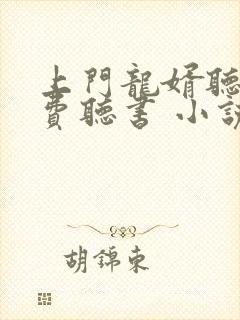 上門龍婿聽
費聽書 小說
胡錦東